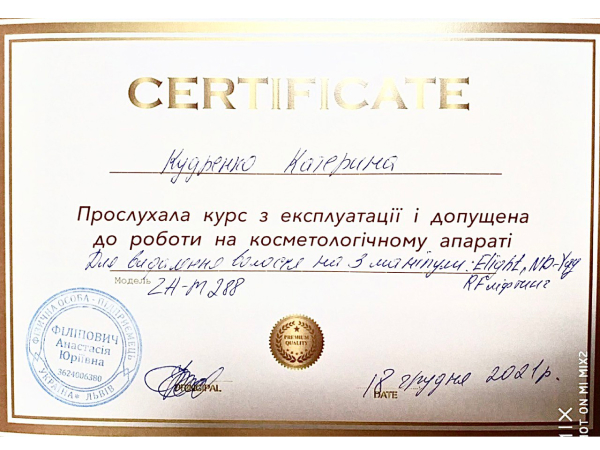 CERTIFICATE
Кудренко Катерина
Прослухала курс з експлуатації і допущена
до роботи на косметологічному апараті
Для видалення волосся на 3 маніпули: Elight, ND-Yag
Модель ZH-M288 RF ліфтинг
ФІЗИЧНА ОСОБА - ПІДПРИЄМЕЦЬ
ФІЛІПОВИЧ
Анастасія
Юріївна
3624006380
УКРАЇНА ЛЬВІВ
PREMIUM
QUALITY
PRINCIPAL
18 грудня 2021р.
DATE
SHOT ON MI MIX2